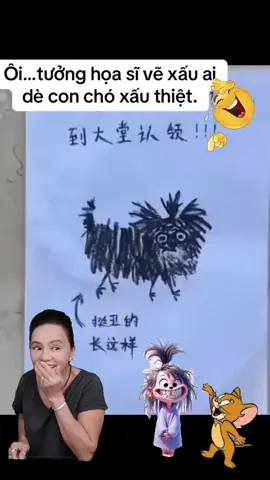 Ôi...tưởng họa sĩ vẽ xấu ai
dè con chó xấu thiệt.
到大堂认领!!!
挺丑的
长这样